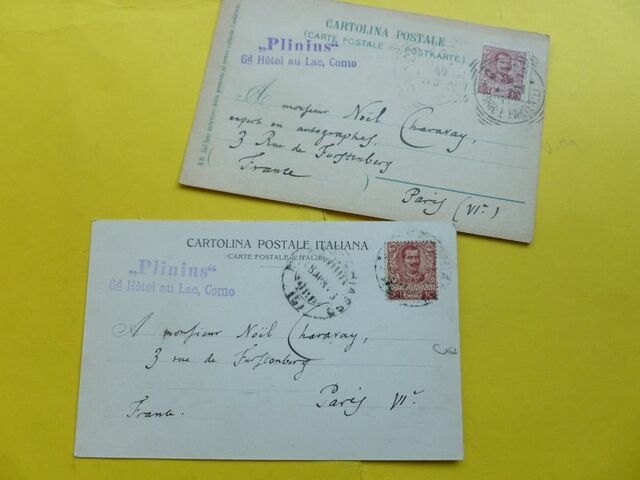 CARTOLINA POSTALE
(CARTE POSTALE — POSTKARTE)
„Plinius“
Gd Hôtel au Lac, Como
A monsieur Noël Charavay,
expert en autographes,
3 Rue de Furstenberg
France
Paris (VIe)
CARTOLINA POSTALE ITALIANA
(CARTE POSTALE D'ITALIE)
„Plinius“
Gd Hôtel au Lac, Como
A monsieur Noël Charavay,
3 rue de Furstenberg
Paris VIe
France.